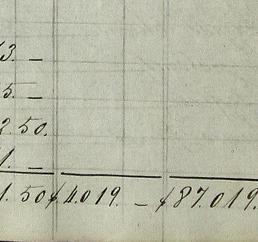 3. —
5. —
2.50.
1. —
1.50 $4.019. — $87.019.